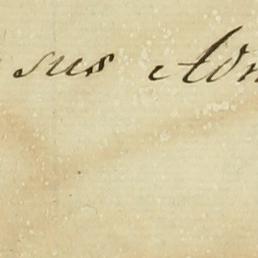 sus Adm